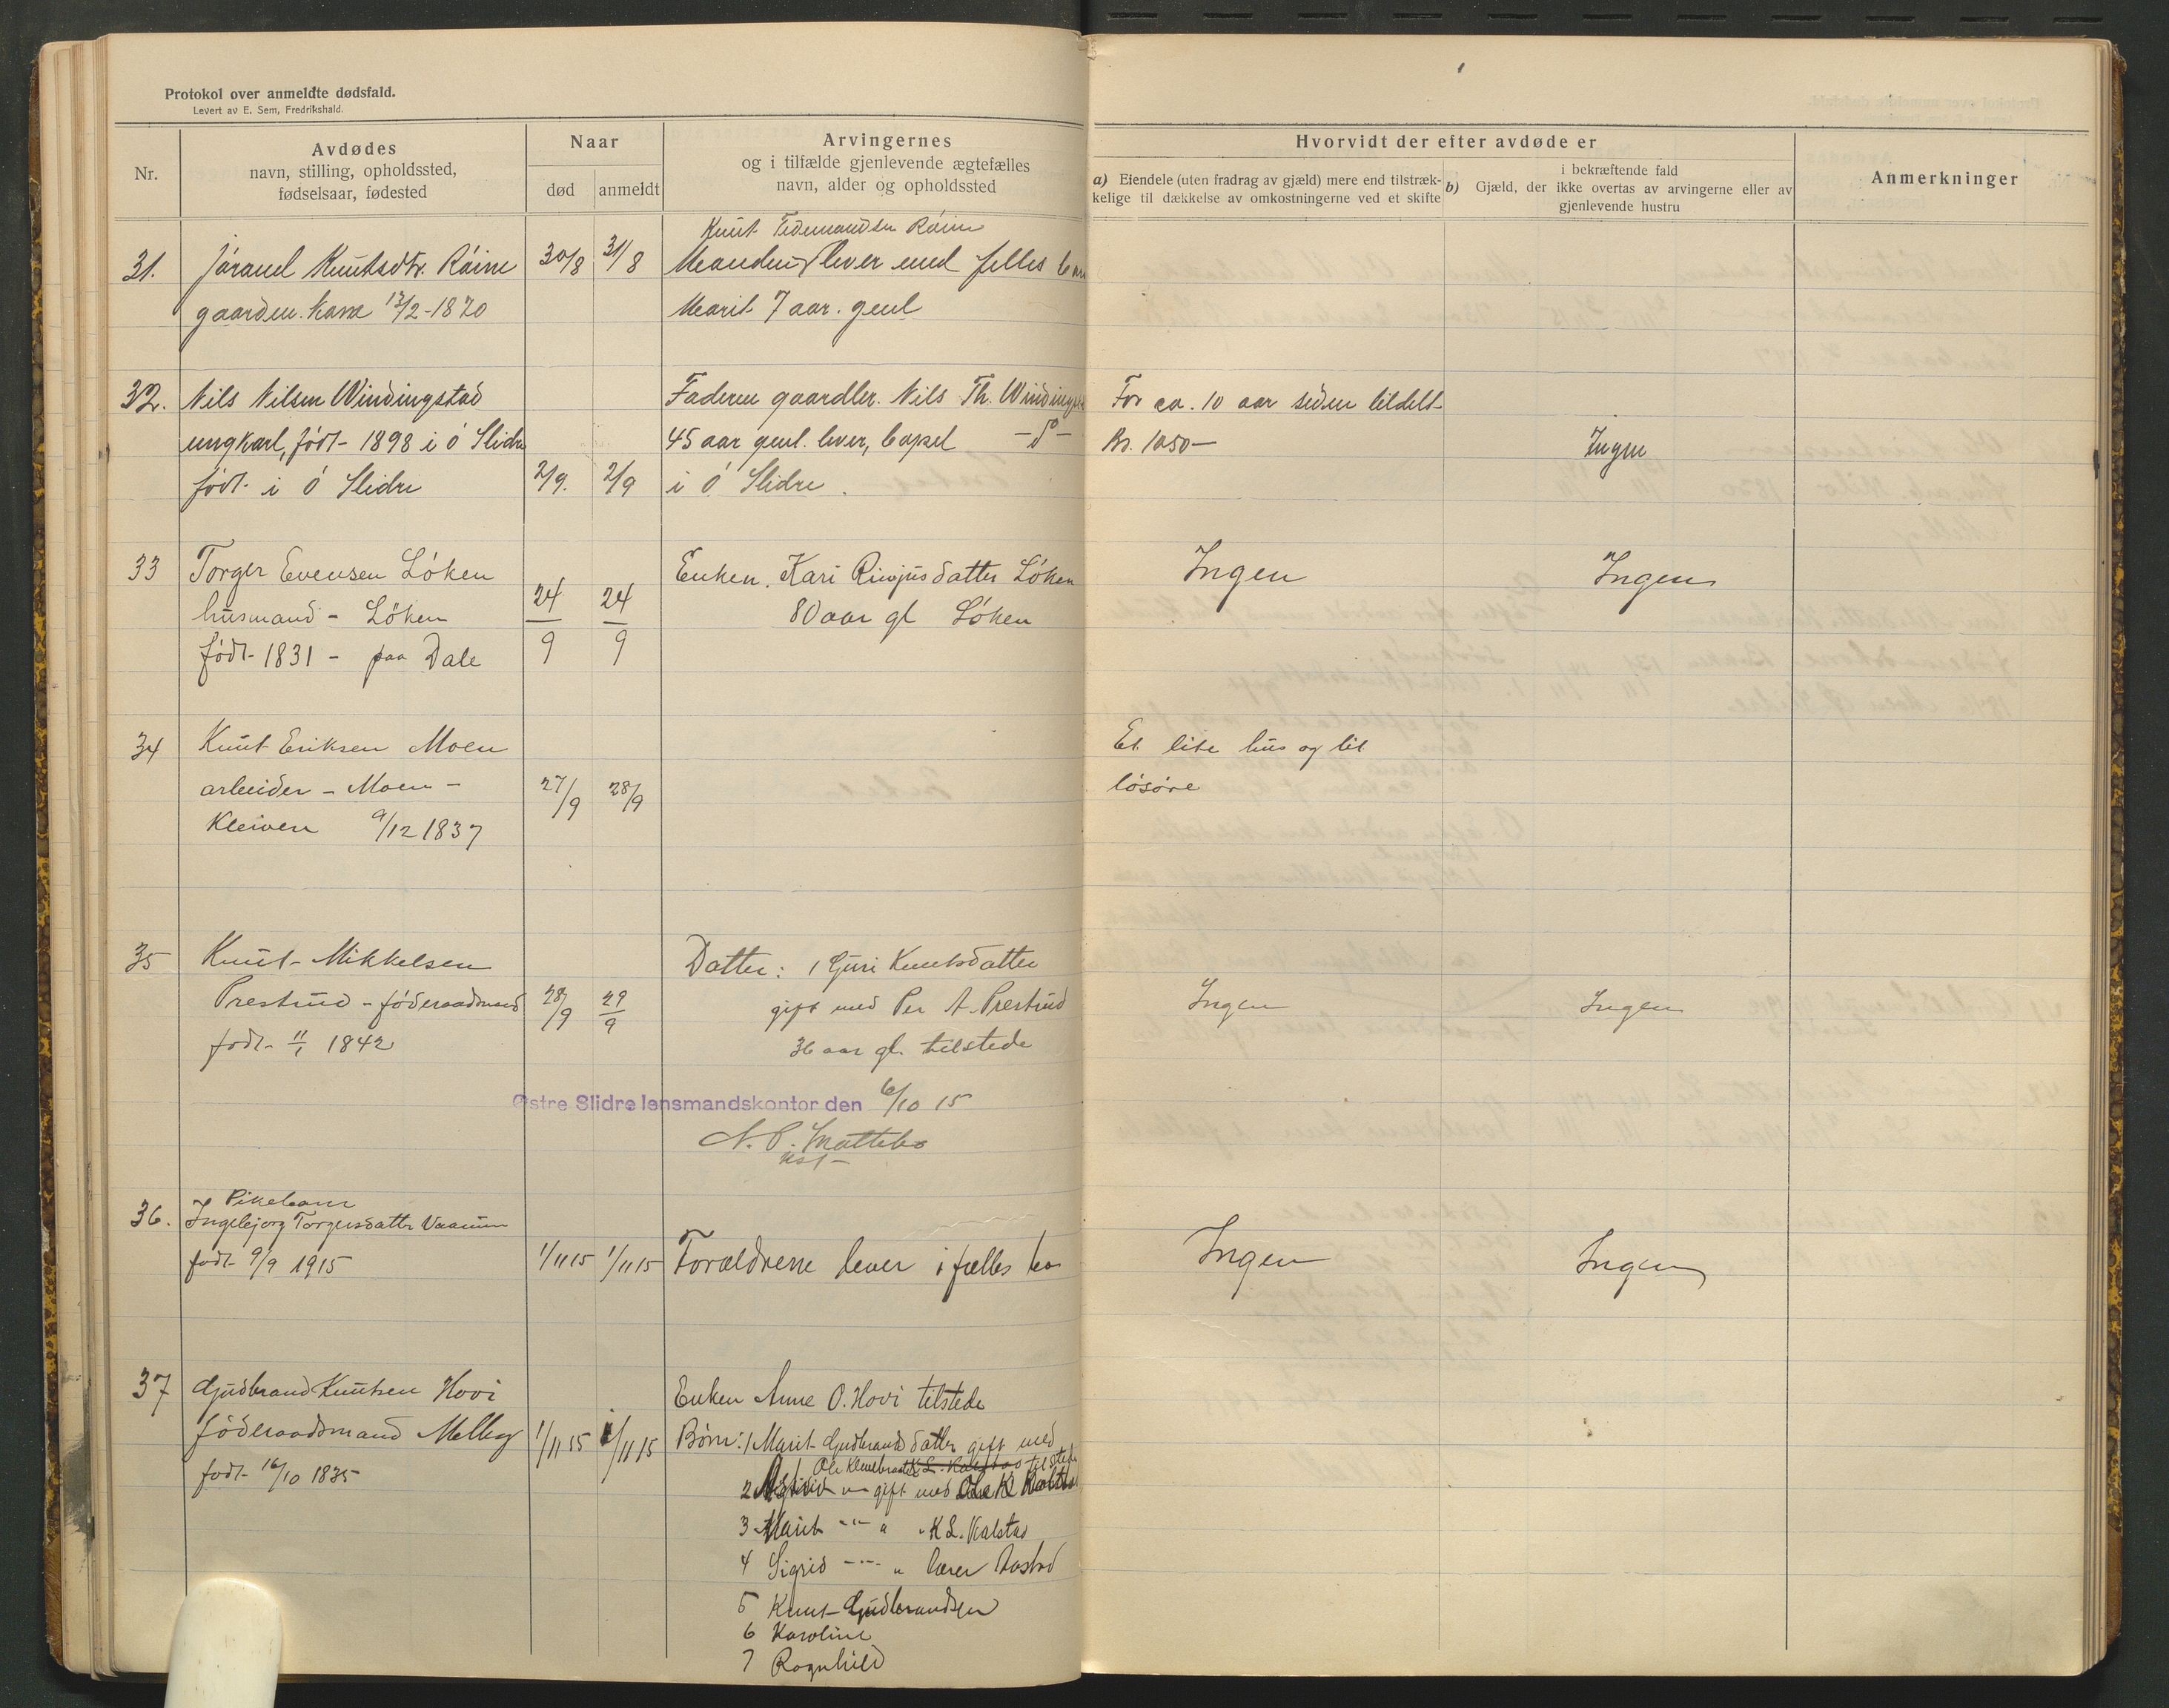 Protokol over anmeldte dødsfald.
Levert av E. Sem, Fredrikshald.
Nr.
Avdødes
navn, stilling, opholdssted,
fødselsaar, fødested
Naar
død
anmeldt
Arvingernes
og i tilfælde gjenlevende ægtefælles
navn, alder og opholdssted
Hvorvidt der efter avdøde er
a) Eiendele (uten fradrag av gjæld) mere end tilstræk-
kelige til dækkelse av omkostningerne ved et skifte
b) Gjæld, der
i bekræftende fald
ikke overtas av arvingerne eller av
gjenlevende hustru
Anmerkninger
31. Jórand Knutsdtr. Róine 30/8 31/8
gaardm. kone 12/2-1870
Knut Tidemandsen Róine
Manden lever med felles barn
Marit 7 aar. geml
32. Nils Nilsen Windingstad
ungkarl, født 1898 i Ó Slidre
født i Ó Slidre 2/9. 2/9
Faderen gaardbr. Nils Th. Windingstad
45 aar geml. lever, bopæl -do-
i Ó Slidre.
For ca. 10 aar siden tildelt
Kr. 1050-
Ingen
33 Torger Evensen Lóken
husmand - Lóken
24/9 24/9
født 1831 - paa Dale
Enken. Kari datter Lóken
80 aar gl Lóken
Ingen
Ingen
34 Knut Eriksen Moen
arbeider - Moen -
27/9 28/9
Kleiven 9/12 1837
Et lite hus og lit
lósóre
35 Knut Mikkelsen
Prestrud - fóderaadsmand 28/9 29/9
født 11/1 1842
Datter: 1 Guri Knutsdatter
gift med Per A. Prestrud
36 aar gl. tilstede
Ingen
Ingen
Østre Slidre lensmandskontor den 6/10 15
36. Pikebarn
Ingebjørg Torgersdatter
født 9/9 1915 1/11 15 1/11 15
Forældrene lever i fælles bo
Ingen
Ingen
37 Gudbrand Knutsen Hovi
fóderaadsmand Melby 1/11 15 1/11 15
født 16/10 1835
Enken Anne O. Hovi tilstede
Børn: 1 Marit Gudbrandsdatter gift med
Ole tilstede
2 Astrid gift med Ole K
3 Marit -"- " " K L. Kalstad
4 Sigrid -"- " lærer
5 Knut Gudbrandsen
6 Karoline
7 Ragnhild